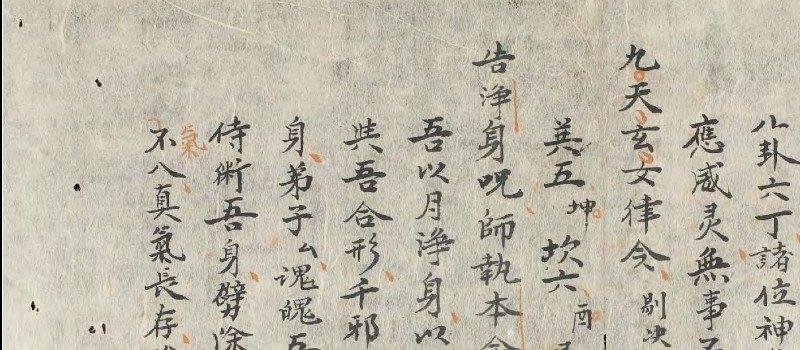 八卦六丁諸位神
應感灵無事
九天玄女律令剔决
英五坤坎六酉
告淨身咒師執本命
吾以月淨身以
與吾合形千邪
身弟子厶魂魄五
侍衛吾身劈除
不入真氣長存
氣